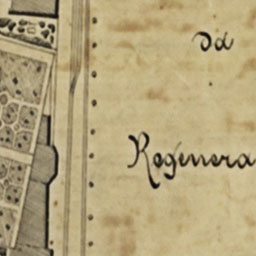 da
Regenera